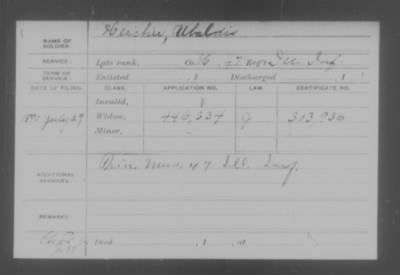 NAME OF SOLDIER:
SERVICE: Late rank, Co. H, 47 Reg't Ill. Inf.
TERM OF SERVICE: Enlisted , 1 Discharged , 1
DATE OF FILING. CLASS. APPLICATION NO. LAW. CERTIFICATE NO.
Invalid,
1890 July 29 Widow, 446,334 G 313,936
Minor,
ADDITIONAL SERVICES: Prin. Mus. 47 Ill. Inf.
REMARKS:
Died , 1 , at